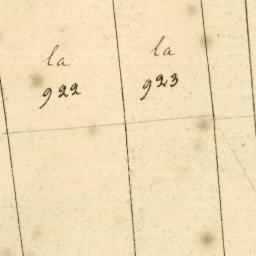 la
922
la
923